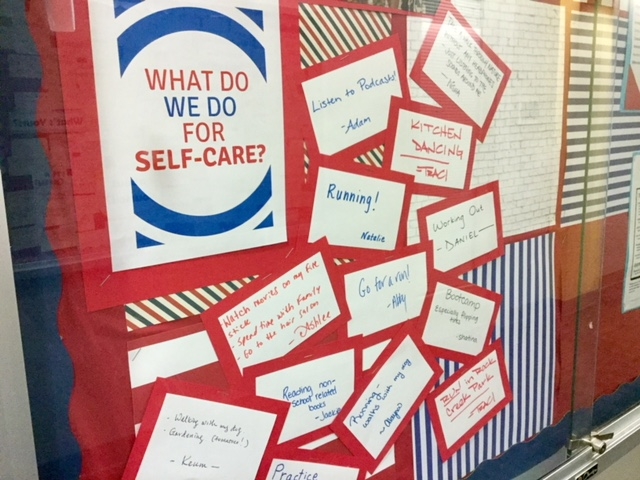 WHAT DO
WE DO
FOR
SELF-CARE?
Listen to Podcasts!
-Adam
KITCHEN
DANCING
-TRACI
Running!
Natalie
Working Out
-DANIEL-
Watch movies on my fire
stick
- Spend time with family
- Go to the hair salon
-Dashlee
Go for a run!
-Abby
Bootcamp
Especially
Reading non-
school related
books
-Jackie
Running-
walks with my
RUN in Rock
Creek Park
-TRACI
- Walking with my dog
- Gardening (tomatoes!)
- Keum -
Practice